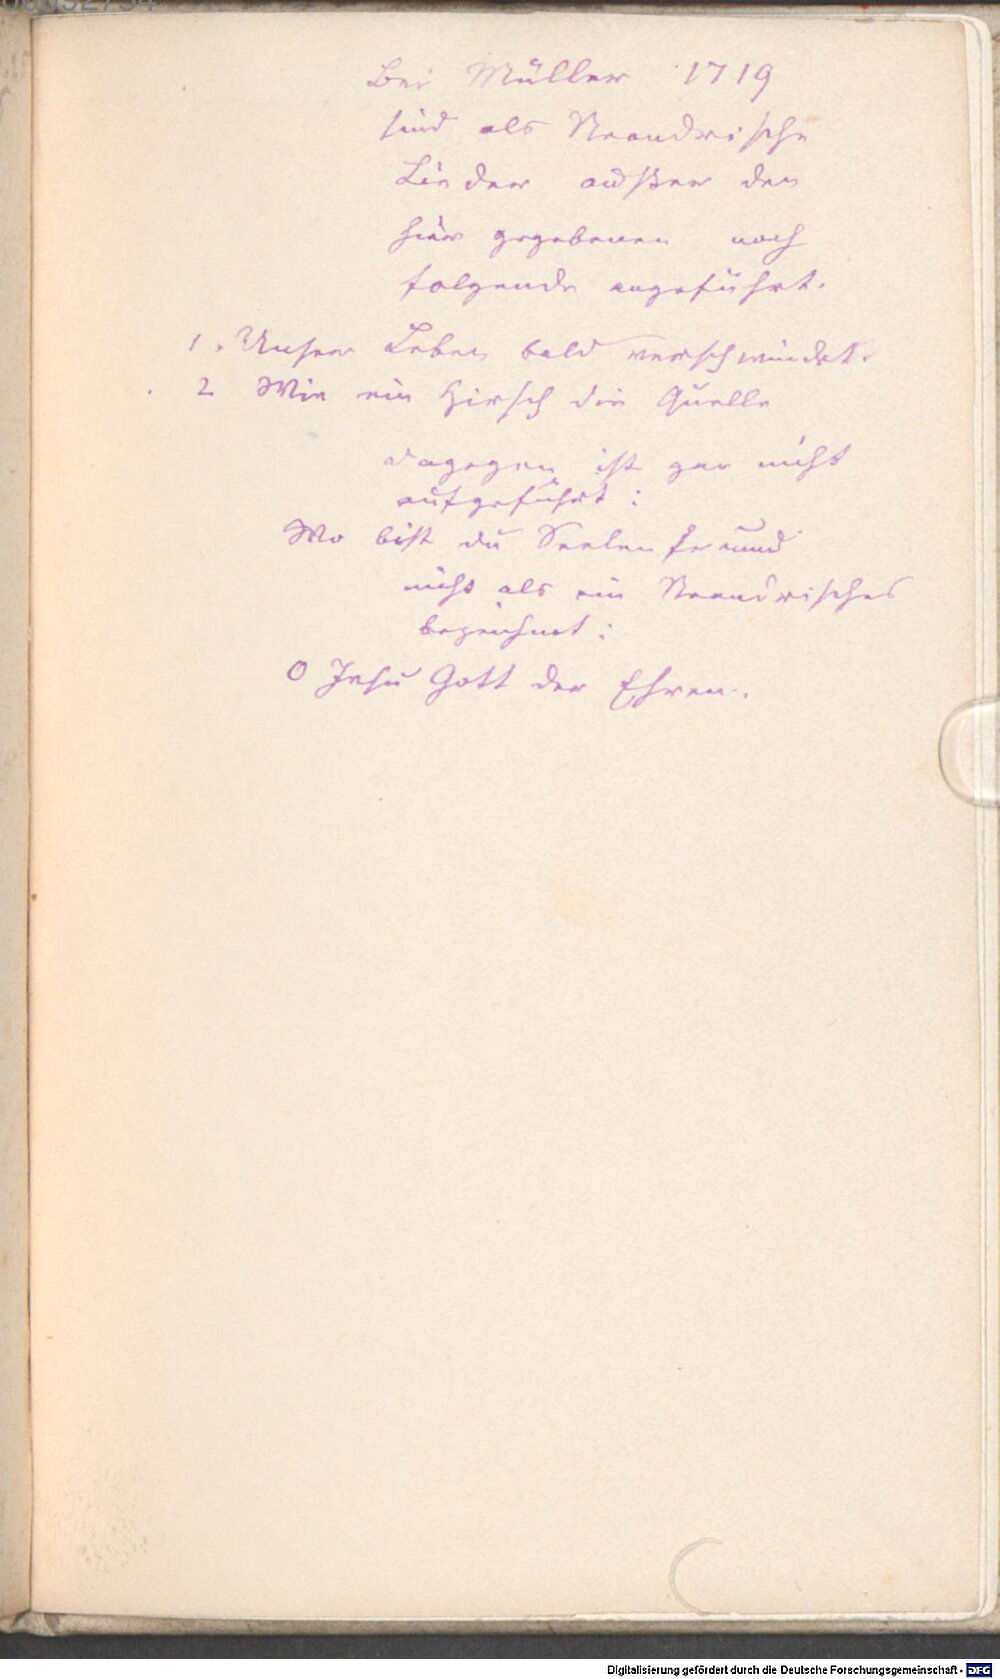 Bei Müller 1719
sind als Neandrische
Lieder außer den
hier gegebenen noch
folgende angeführt.
1. Unser Leben bald verschwindet.
2 Wie ein Hirsch die Quelle
dagegen ist gar nicht
aufgeführt:
Wo bist du Seelenfreund
nicht als ein Neandrisches
bezeichnet:
O Jesu Gott der Ehren.
Digitalisierung gefördert durch die Deutsche Forschungsgemeinschaft - DFG